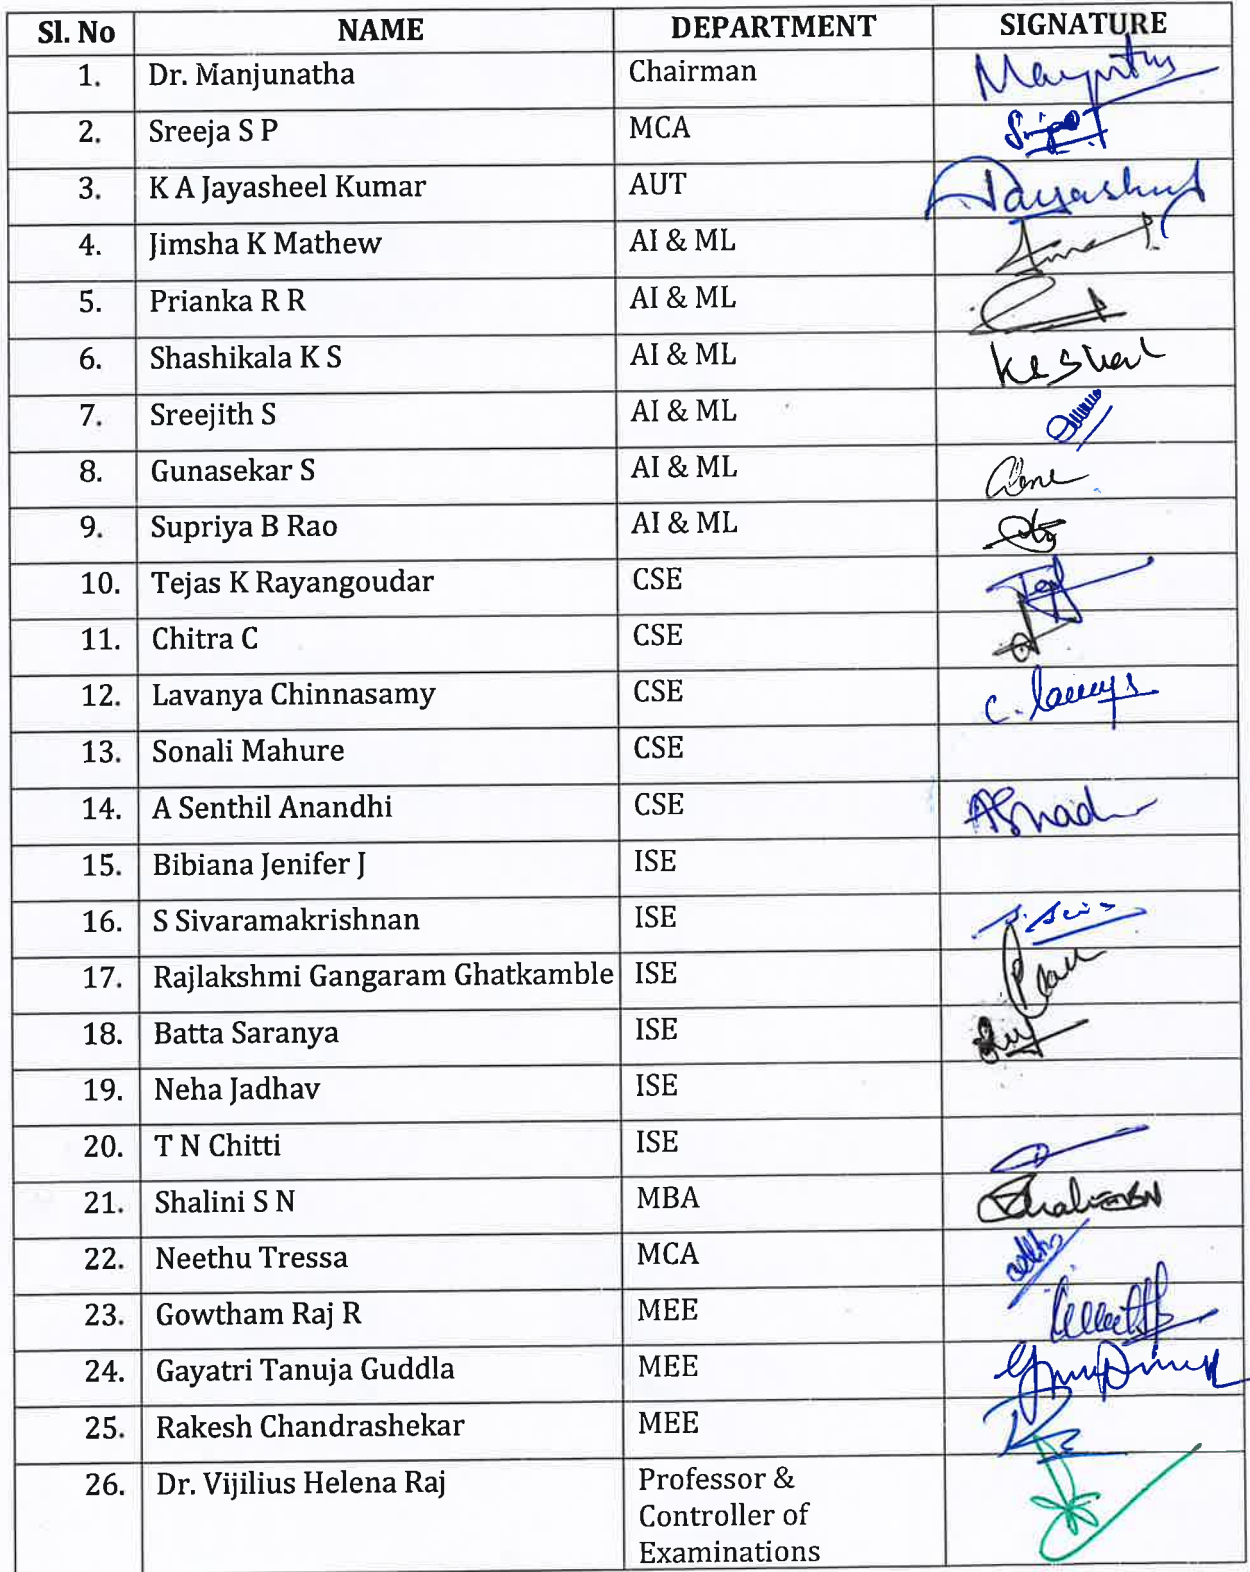 Sl. No NAME DEPARTMENT SIGNATURE
1. Dr. Manjunatha Chairman
2. Sreeja S P MCA
3. K A Jayasheel Kumar AUT
4. Jimsha K Mathew AI & ML
5. Prianka R R AI & ML
6. Shashikala K S AI & ML
7. Sreejith S AI & ML
8. Gunasekar S AI & ML
9. Supriya B Rao AI & ML
10. Tejas K Rayangoudar CSE
11. Chitra C CSE
12. Lavanya Chinnasamy CSE
13. Sonali Mahure CSE
14. A Senthil Anandhi CSE
15. Bibiana Jenifer J ISE
16. S Sivaramakrishnan ISE
17. Rajlakshmi Gangaram Ghatkamble ISE
18. Batta Saranya ISE
19. Neha Jadhav ISE
20. T N Chitti ISE
21. Shalini S N MBA
22. Neethu Tressa MCA
23. Gowtham Raj R MEE
24. Gayatri Tanuja Guddla MEE
25. Rakesh Chandrashekar MEE
26. Dr. Vijilius Helena Raj Professor &
Controller of
Examinations